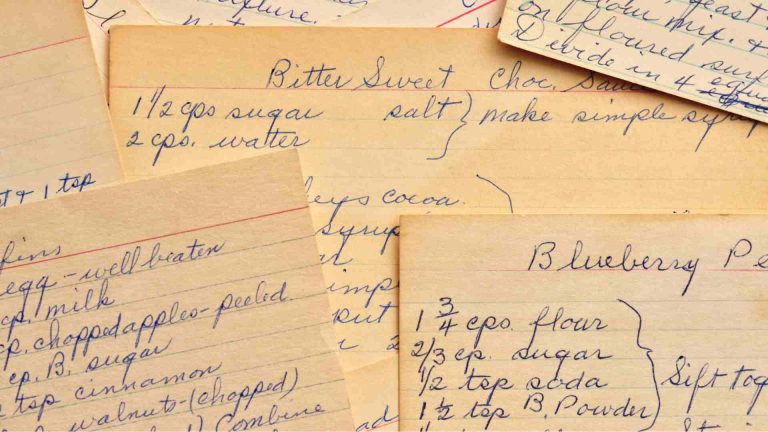 on floured surf
Divide in 4 equa
Bitter Sweet Choc. Sauc
1 1/2 cps sugar salt } make simple syrup
2 cps. water
+ 1 tsp
leys cocoa
syrup
fins
egg - well beaten
cp. milk
cp. chopped apples - peeled
cp. B. sugar
tsp cinnamon
walnuts - (chopped)
Combine
Blueberry Pe
1 3/4 cps. flour
2/3 cp. sugar
1/2 tsp soda
1 1/2 tsp B. Powder
Sift tog